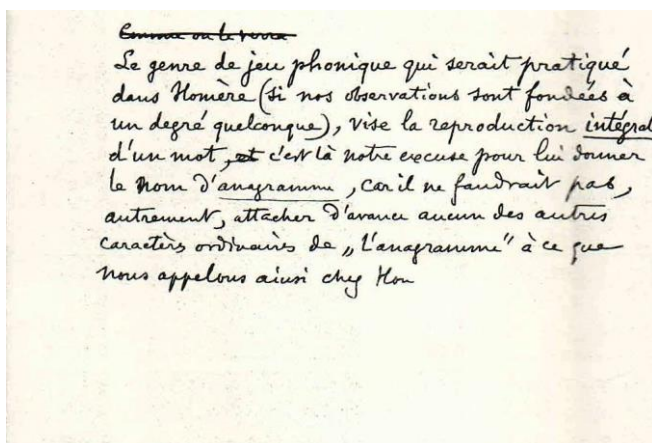 Comme on le verra
Le genre de jeu phonique qui serait pratiqué
dans Homère (si nos observations sont fondées à
un degré quelconque), vise la reproduction intégral
d'un mot, et c'est là notre excuse pour lui donner
le nom d'anagramme, car il ne faudrait pas,
autrement, attacher d'avance aucun des autres
caractères ordinaires de „l'anagramme" à ce que
nous appelons ainsi chez Hom